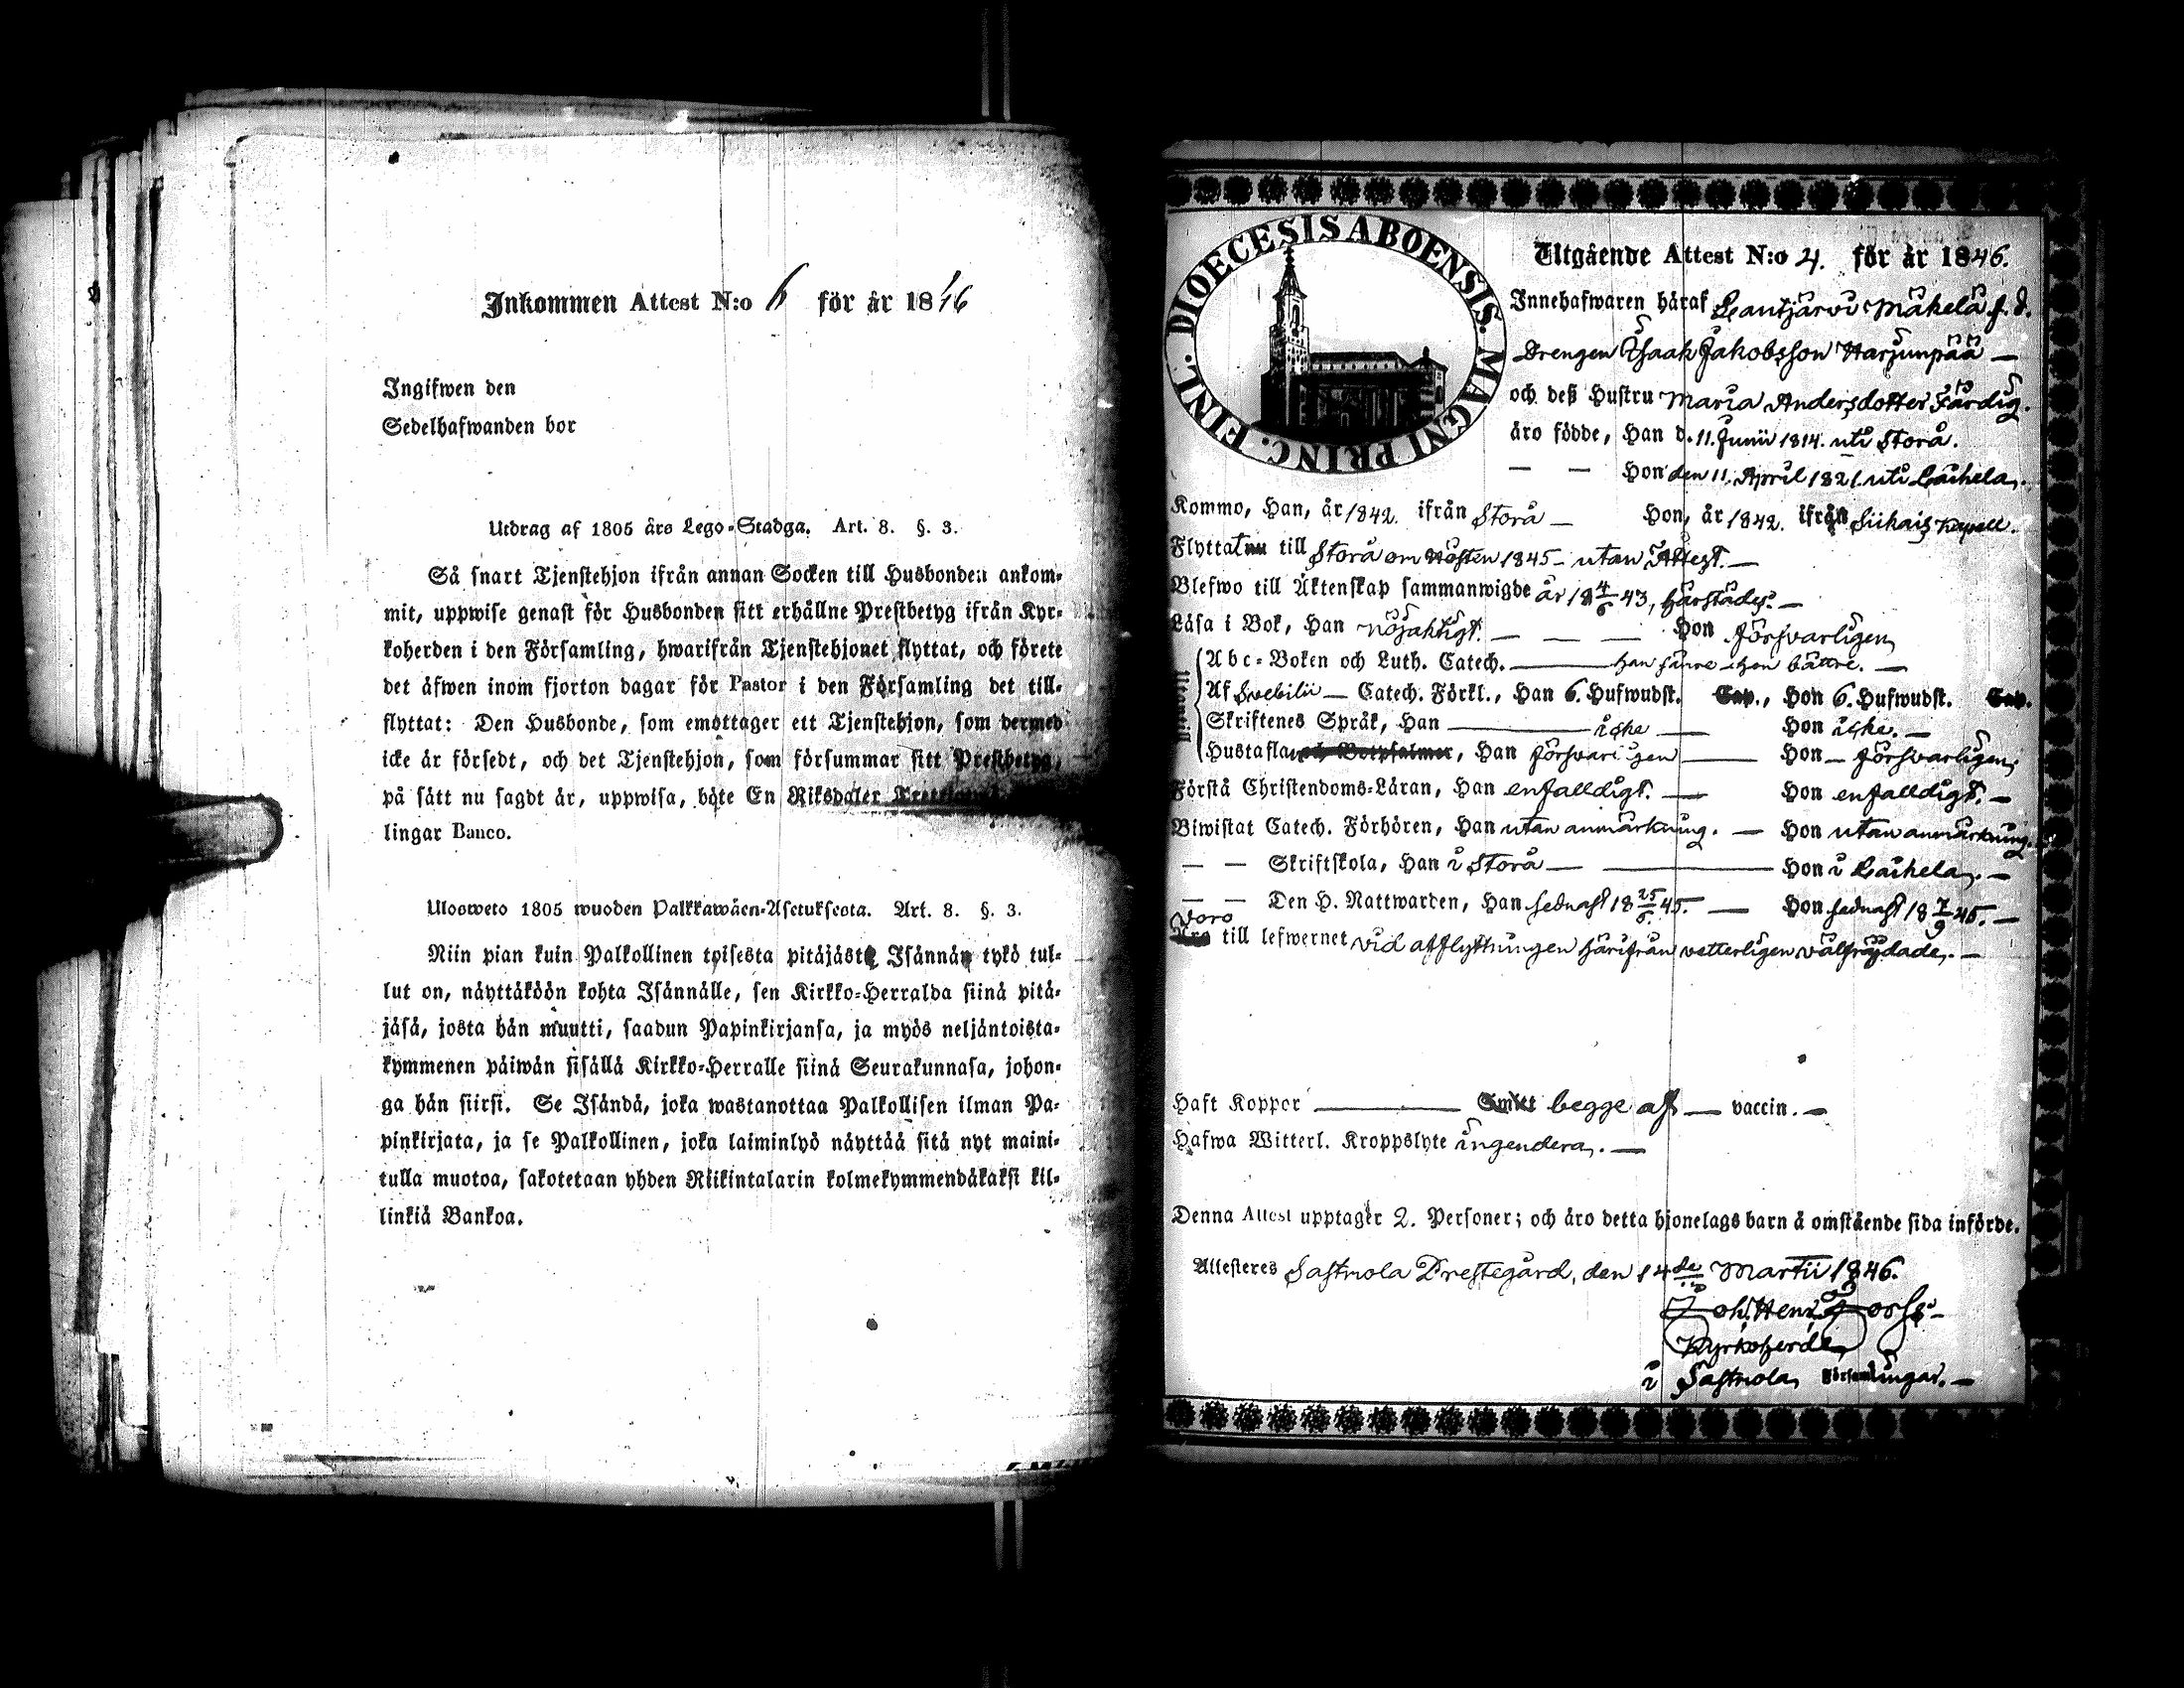 Inkommen Attest N:o 6 för år 1846
Ingifwen den
Sedelhafwanden bor
Utdrag af 1805 års Lego-Stadga. Art. 8. §. 3.
Så snart Tjenstehjon ifrån annan Socken till Husbonden ankom-
mit, uppwise genast för Husbonden sitt erhållne Prestbetyg ifrån Kyr-
koherden i den Församling, hwarifrån Tjenstehjonet flyttat, och förete
det äfwen inom fjorton dagar för Pastor i den Församling det till-
flyttat: Den Husbonde, som emottager ett Tjenstehjon, som dermed
icke är försedt, och det Tjenstehjon, som försummar sitt Prestbetyg,
på sätt nu sagdt är, uppwisa, böte En Riksdaler
lingar Banco.
Ulosweto 1805 wuoden Palkkawäen-Asetuksesta. Art. 8. §. 3.
Niin pian kuin Palkollinen toisesta pitäjästä Isännän tykö tul-
lut on, näyttäköön kohta Isännälle, sen Kirkko-Herralda siinä pitä-
jäsä, josta hän muutti, saadun Papinkirjansa, ja myös neljäntoista-
kymmenen päiwän sisällä Kirkko-Herralle siinä Seurakunnasa, johon-
ga hän siirsi. Se Isändä, joka wastanottaa Palkollisen ilman Pa-
pinkirjata, ja se Palkollinen, joka laiminlyö näyttää sitä nyt maini-
tulla muotoa, sakotetaan yhden Riikintalarin kolmekymmendäkaksi kil-
linkiä Bankoa.
DIOECESIS ABOENSIS. MAGNI PRINC. FINL.
Utgående Attest N:o 4. för år 1846.
Innehafwaren häraf Lautjärvi Mäkelä f.d.
Drengen Isaak Jakobsson Harjunpää —
och deß Hustru Maria Andersdotter Färdig.
äro födde, Han d. 11. Junii 1814. uti Storå.
— — Hon den 11. April 1821. uti Laihela.
Kommo, Han, år 1842. ifrån Storå — Hon, år 1842. ifrån Siikais Kapell.
Flyttat till Storå om Hösten 1845 — utan Attest. —
Blefwo till Äktenskap sammanwigde år 18 4/6 43, härstädes. —
Läsa i Bok, Han nöjaktigt. — — — Hon försvarligen
Abc-Boken och Luth. Catech. — han sämre hon bättre. —
Af Svebilii — Catech. Förkl., Han 6. Hufwudst. Cap., Hon 6. Hufwudst. Cap.
Skriftenes Språk, Han — icke — Hon icke. —
Hustafla och Botpsalmer, Han försvarligen — Hon — försvarligen,
Förstå Christendoms-Läran, Han enfalldigt. — Hon enfalldigt. —
Biwistat Catech. Förhören, Han utan anmärkning. — Hon utan anmärkning.
— — Skriftskola, Han i Storå — Hon i Laihela. —
— — Den H. Nattwarden, Han sednast 18 25/5 45. — Hon sednast 18 7/9 45. —
Voro
Äro till lefwernet vid afflyttningen härifrån vetterligen välfräjdade. —
Haft Koppor — Smitt begge af — vaccin. —
Hafwa Witterl. Kroppslyte ingendera. —
Denna Attest upptager 2. Personer; och äro detta hjonelags barn å omstående sida införde.
Attesteres Sastmola Prestegård, den 14de Martii 1846.
Joh. Henr.
Kyrkoherde
i Sastmola Församlingar. —